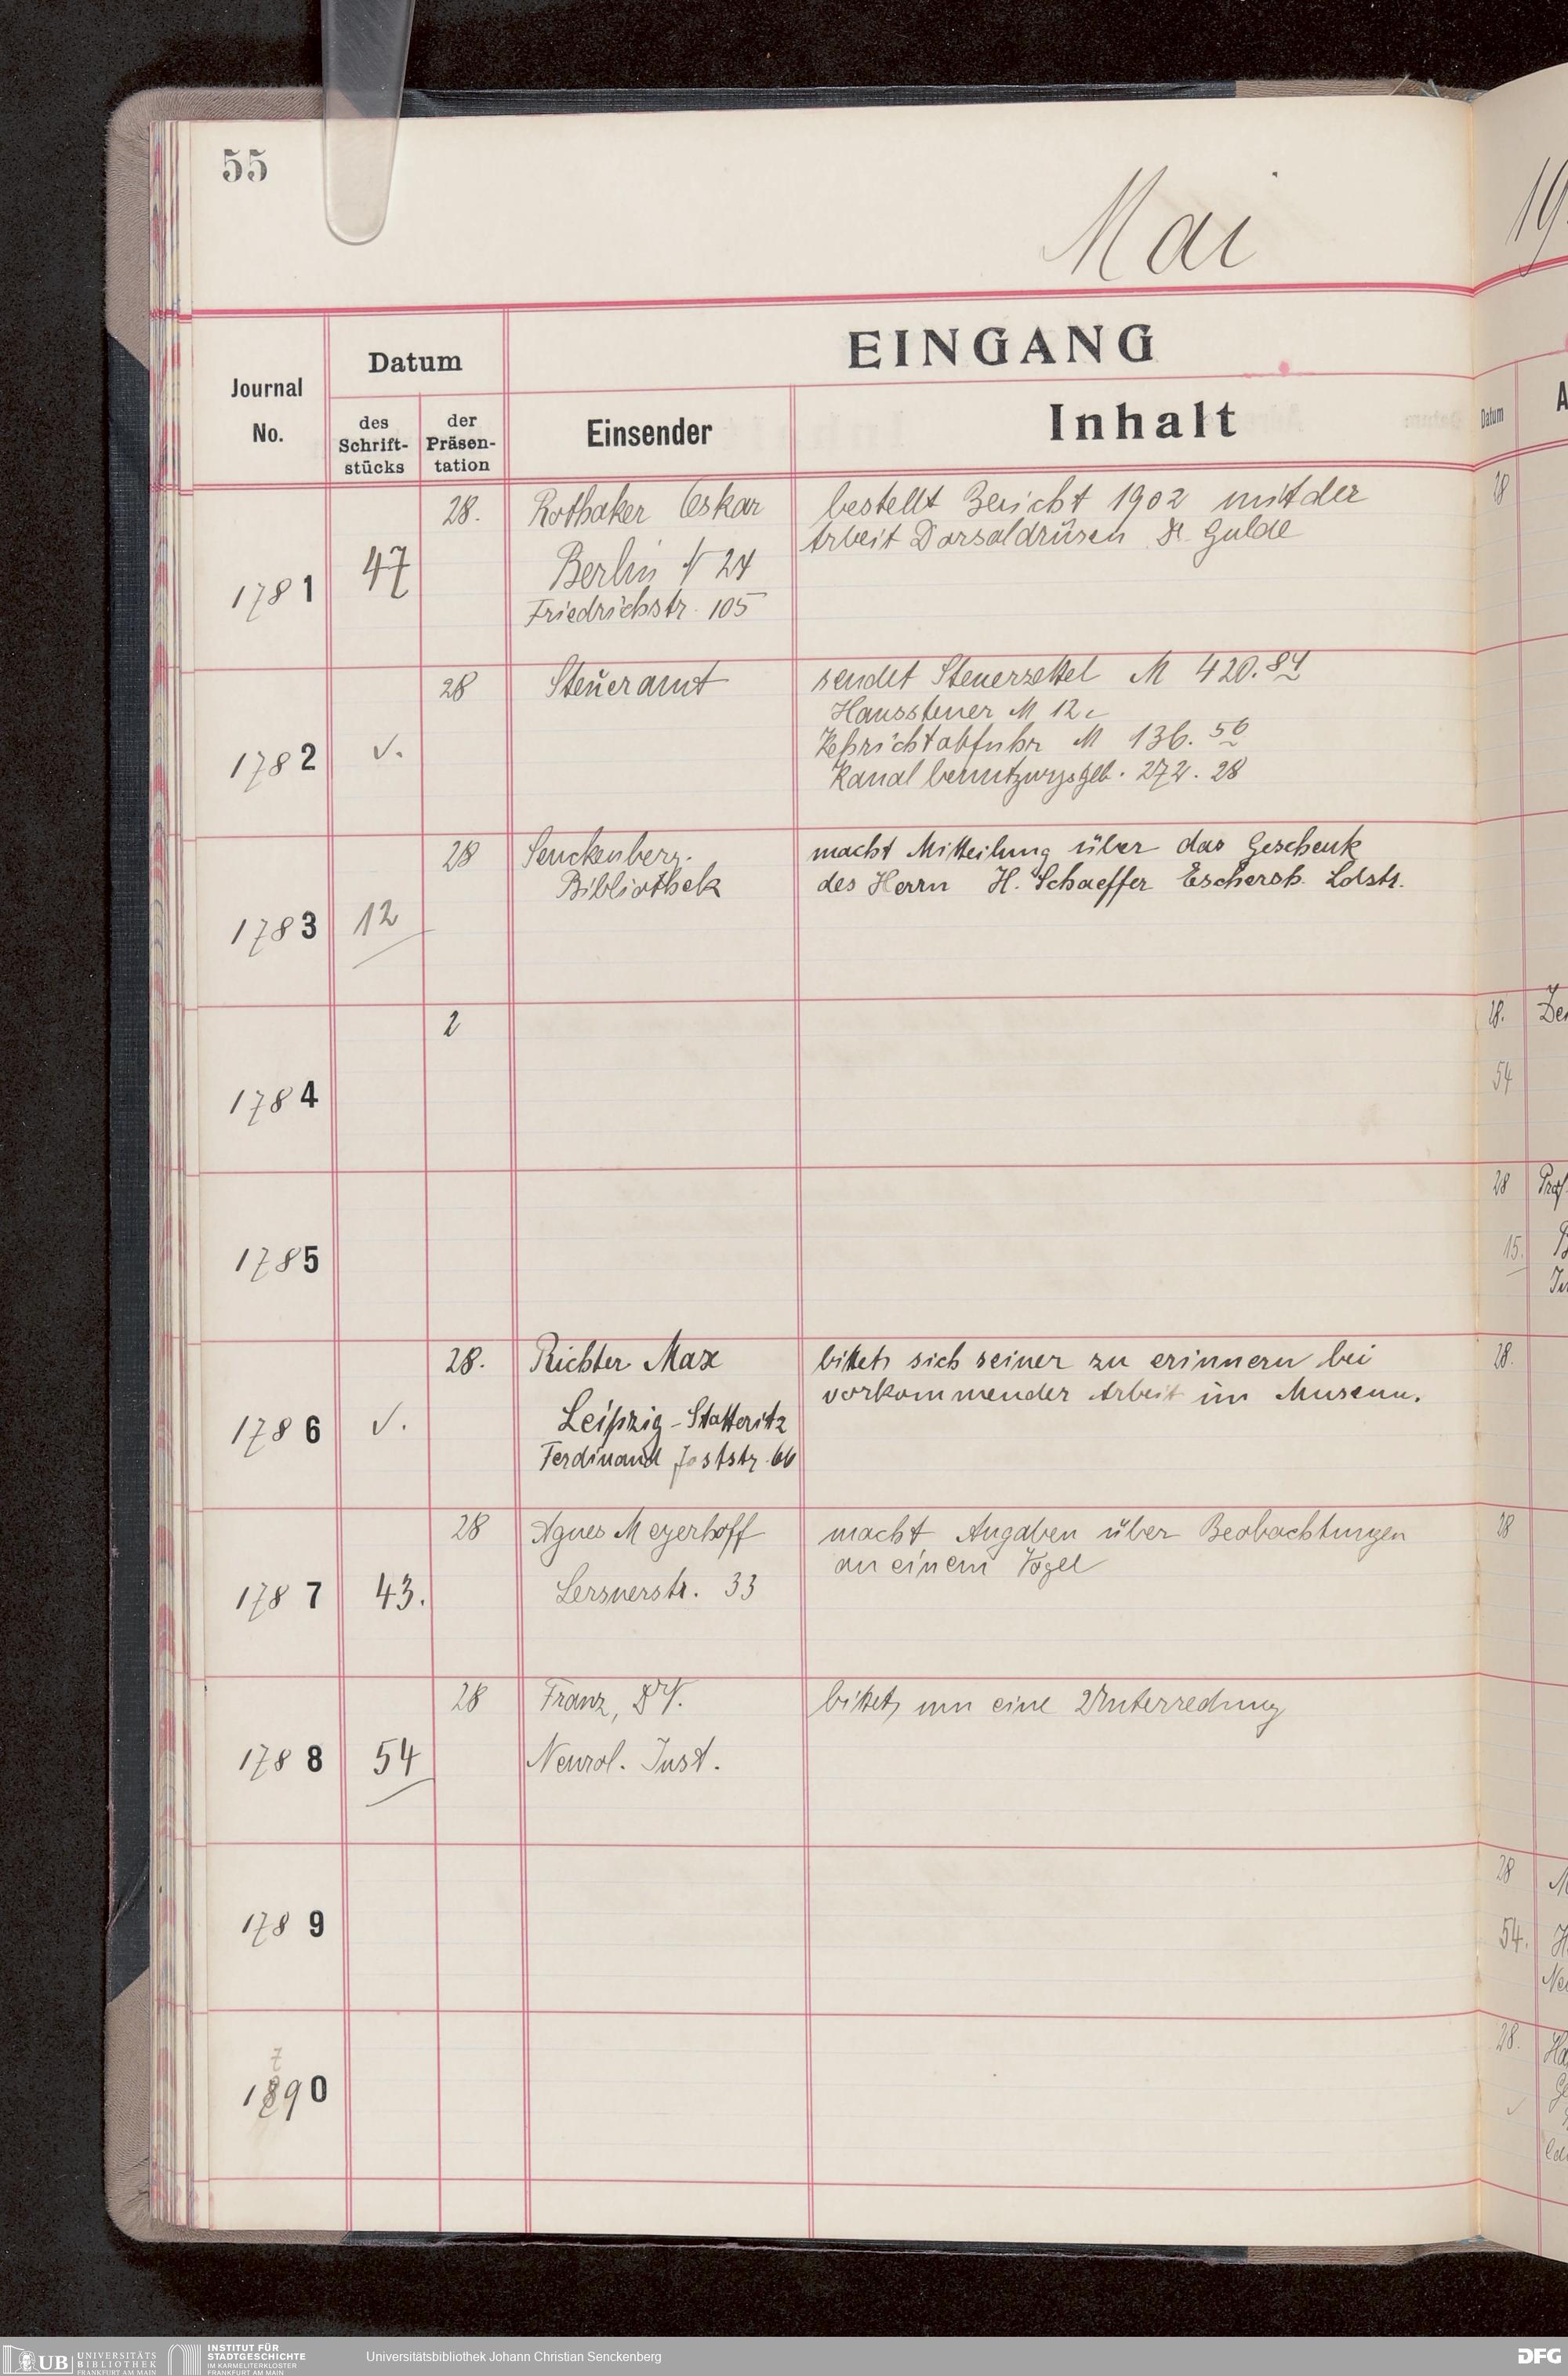 55
Mai
19
EINGANG
Datum
Journal
No.
des
Schrift-
stücks
der
Präsen-
tation
Einsender
Inhalt
Datum
A
28. Rothaker Oskar bestellt Bericht 1902 mit der
Arbeit Dorsaldrüsen Dr. Gulde
1781 47 Berlin N 24
Friedrichstr. 105
28
28 Steueramt sendet Steuerzettel M 420.84
Haussteuer M 12.
1782 v. Kehrichtabfuhr M 136. 56
Kanalbenutzungsgeb. 272. 28
28 Senckenberg. macht Mitteilung über das Geschenk
Bibliothek des Herrn H. Schaeffer Eschersh. Ldstr.
1783 12
2
1784
28.
54
1785
28 Prof.
15.
28. Richter Max bittet, sich seiner zu erinnern bei
vorkommender Arbeit im Museum.
1786 v. Leipzig-Stötteritz
Ferdinand Joststr. 66
28.
28 Agnes Meyerhoff macht Angaben über Beobachtungen
an einem Vogel
1787 43. Lersnerstr. 33
28
28 Franz, Dr V. bittet, um eine Unterredung
1788 54 Neurol. Inst.
1789
28
54.
7
1890
28.
UB UNIVERSITÄTS
BIBLIOTHEK
FRANKFURT AM MAIN
INSTITUT FÜR
STADTGESCHICHTE
IM KARMELITERKLOSTER
FRANKFURT AM MAIN
Universitätsbibliothek Johann Christian Senckenberg
DFG